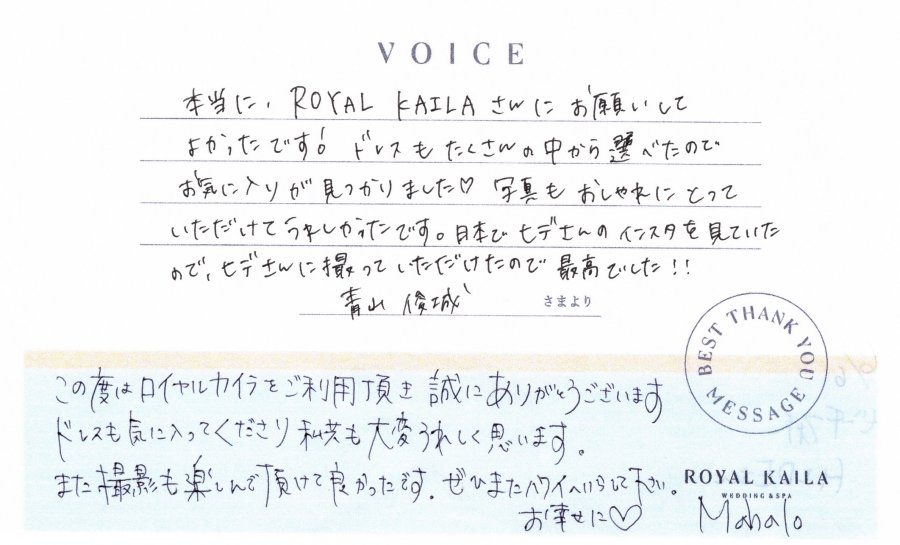 VOICE
本当に、ROYAL KAILAさんにお願いして
よかったです! ドレスもたくさんの中から選べたので
お気に入りが見つかりました♡ 写真もおしゃれにとって
いただけてうれしかったです。日本でヒデさんのインスタを見ていた
ので、ヒデさんに撮っていただけたので最高でした!!
青山 俊城 さまより
BEST THANK YOU MESSAGE
この度はロイヤルカイラをご利用頂き 誠にありがとうございます
ドレスも気に入ってくださり 私共も大変うれしく思います。
また撮影も楽しんで頂けて良かったです。ぜひまたハワイへいらして下さい。
お幸せに♡
ROYAL KAILA
WEDDING & SPA
Mahalo